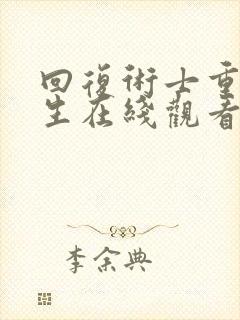 回復術士重
生在綫觀看
李余典